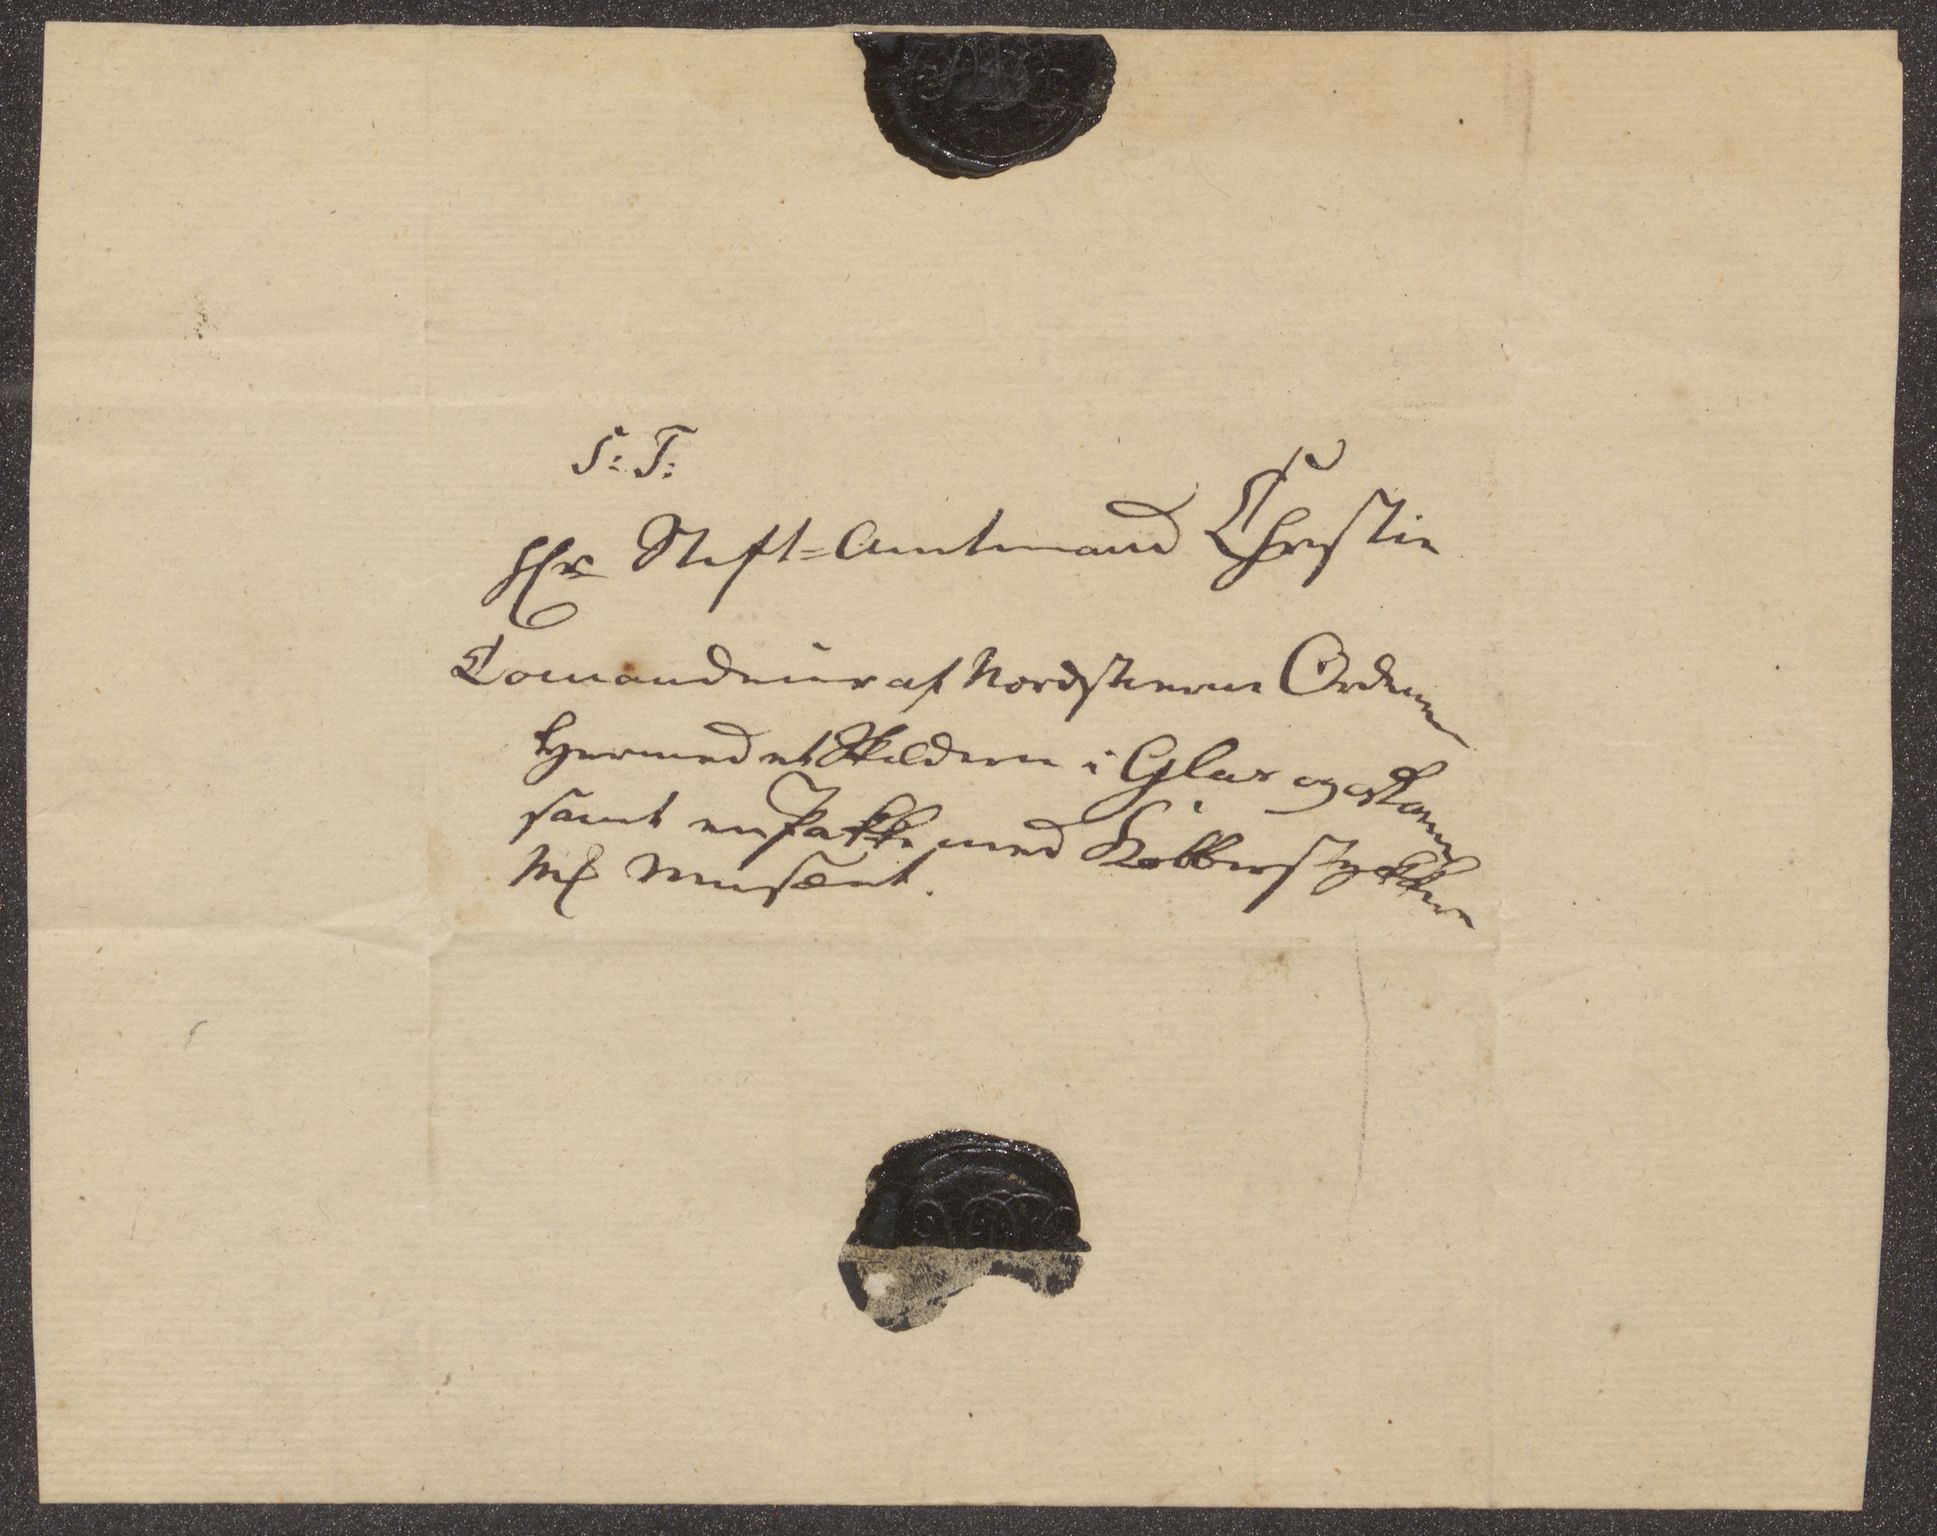 S: T:
Hr Stift=Amtmand Christie
Comandeur af Nordstierne Ordenen
Hermed et Skilderie i Glas og Ram
samt en Pakke med Kobberstykker
til Museet.